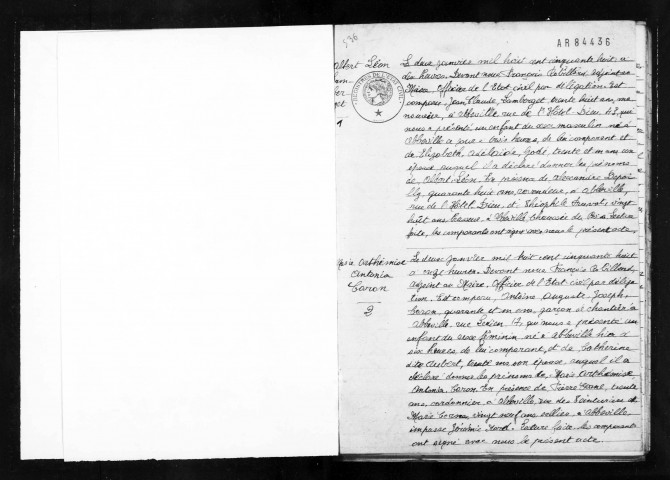 536
AR84436
Albert Léon
1
Le deux janvier mil huit cent cinquante huit, à
dix heures. Devant nous François
Maire Officier de l'Etat civil par délégation. Est
comparu, Jean Claude trente huit ans, ma
nouvrier, à Abbeville rue de l'Hôtel Dieu,
nous a présenté un enfant du sexe masculin né à
Abbeville ce jour à trois heures, de lui comparant et
de Elizabeth, Adélaïde, trente et un ans son
épouse auquel il a déclaré donner les prénoms
de Albert Léon. En présence de Alexandre
quarante huit ans, à Abbeville,
rue de l'Hôtel Dieu, et Théophile vingt
huit ans à Abbeville chaussée du Bois. Lecture
faite, les comparants ont signé avec nous le présent acte.
Marie Arthémise
Antonia
Caron
2
Le deux janvier mil huit cent cinquante huit
à onze heures. Devant nous François
adjoint au Maire, Officier de l'Etat civil par déléga
tion. Est comparu, Antoine Auguste Joseph
Caron, quarante et un ans, garçon de chantier à
Abbeville, rue 17, qui nous a présenté un
enfant du sexe féminin né à Abbeville hier à
six heures de lui comparant, et de Catherine
Aubert, trente ans son épouse, auquel il a
déclaré donner les prénoms de Marie Arthémise
Antonia Caron. En présence de Pierre trente
ans, cordonnier à Abbeville, rue des Teinturiers et
Marie vingt neuf ans sellier à Abbeville
impasse Lecture faite, les comparants
ont signé avec nous le présent acte.